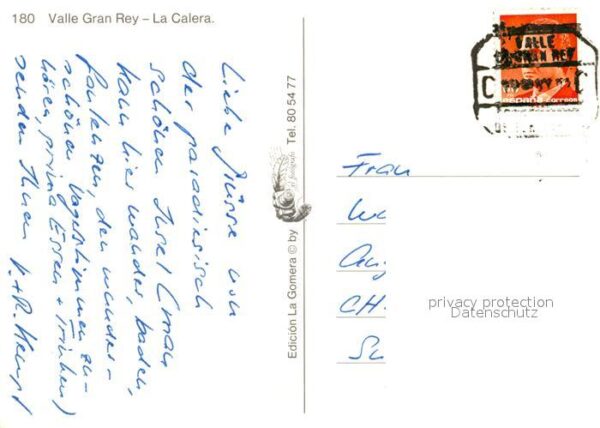 180 Valle Gran Rey – La Calera.
Liebe Grüsse von
der paradiesisch
schönen Insel (man
kann hier wandern, baden,
faulenzen, den wunder-
schönen Vogelstimmen zu-
hören, prima Essen + Trinken)
senden Ihnen
Edición La Gomera © by
Tel. 80 54 77
VALLE
GRAN REY
C C
ESPAÑA correos
Frau
CH-
privacy protection
Datenschutz